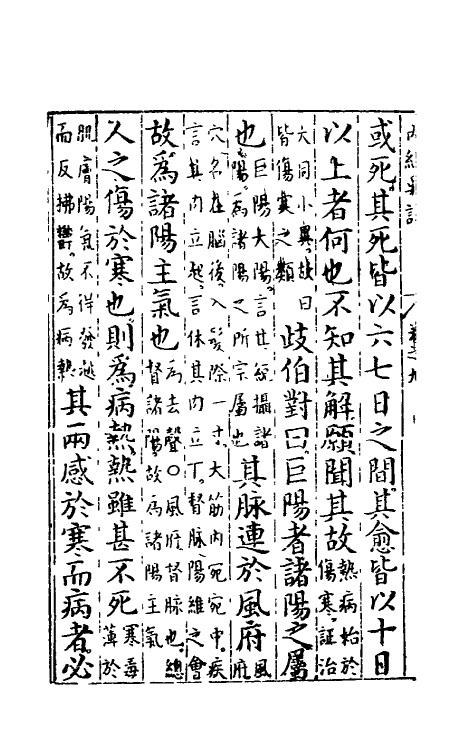 或死其死皆以六七日之間其愈皆以十日
以上者何也不知其解願聞其故熱病始於傷寒証治
大同小異故曰皆傷寒之類歧伯對曰巨陽者諸陽之屬
也巨陽大陽言其經攝諸陽為諸陽之所宗屬也其脉連於風府風府
穴名在腦後入髮際一寸大筋內宛宛中疾言其肉立起言休其肉立下督脉陽維之會
故為諸陽主氣也為去聲○風府督脉也總督諸陽故為諸陽主氣
人之傷於寒也則為病熱熱雖甚不死寒毒薄於
肌膚陽氣不得發越而反拂鬱故為病熱其兩感於寒而病者必